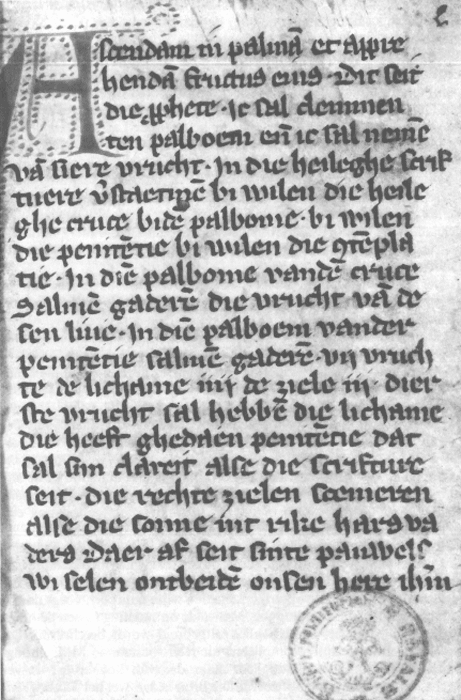 Ascendam in palmā et appre
hendā fructus eius · Dit seit
die ꝓphete · ic sal clemmen
ten palboem en̄ ic sal nemē
vā siere vrucht · In die heileghe scrif
tuere v̄staet mē bi wilen die heile
ghe cruce bidē palbome · bi wilen
die penitētie bi wilen die ꝯtēpla
tie · In diē palbome vandē cruce
Salmē gaderē die vrucht vā de
sen liue · In diē palboem vander
penitētie salmē gaderē · vij vruch
te de lichame iiij de ziele iij · dier
ste vrucht sal hebbē die lichame
die heeft ghedaen penitētie dat
sal sijn clareit alse die scrifture
seit · die rechte zielen scemeren
alse die sonne int rike hars va
ders Daer af seit sinte pauwels
wi selen ontbeidē onsen here ih̄m